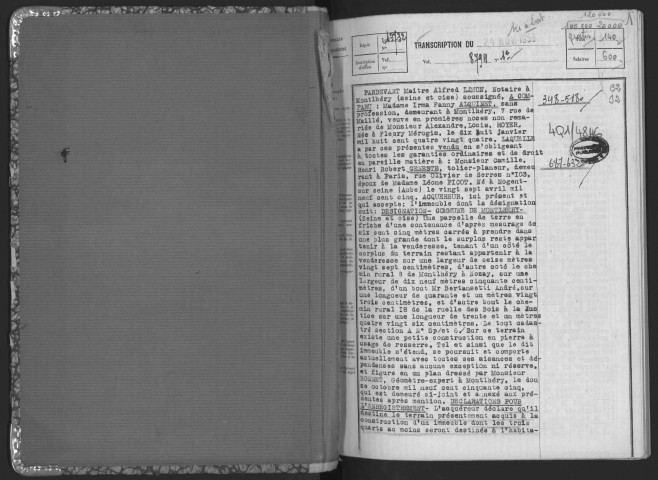 120 000
100 000 20000
TRANSCRIPTION DU
Dépôt
Vol.
Vol. 8798 n° 1
140
Salaires 600
PARDEVANT Maître Alfred LESCH, Notaire à
Montlhéry (seine et oise) soussigné, A COM-
PARU : Madame Irma Fanny ALQUIMET, sans
profession, demeurant à Montlhéry, 7 rue de
Maillé, veuve en premières noces non rema-
riée de Monsieur Alexandre, Louis, NOYER.
Née à Fleury Mérogis, le dix huit janvier
mil huit cent quatre vingt quatre. LAQUELLE
a par ces présentes vendu en s'obligeant
à toutes les garanties ordinaires et de droit
en pareille matière à : Monsieur Camille,
Henri Robert GERESTE, tolier-planeur, demeu
rant à Paris, rue Olivier de Serres n°103,
époux de Madame Léone PICOT. Né à Nogent-
sur seine (Aube) le vingt sept avril mil
neuf cent cinq. ACQUEREUR, ici présent et
qui accepte: l'immeuble dont la désignation
suit: DESIGNATION- COMMUNE DE MONTLHERY-
(Seine et oise) Une parcelle de terre en
friche d'une contenance d'après mesurage de
six cent cinq mètres carrés à prendre dans
une plus grande dont le surplus reste appar
tenir à la venderesse, tenant d'un côté le
surplus du terrain restant appartenir à la
venderesse sur une largeur de seize mètres
vingt sept centimètres, d'autre coté le che
min rural 8 de Montlhéry à Nozay, sur une
largeur de dix neuf mètres cinquante centi-
mètres, d'un bout Mr Bertansetti André, sur
une longueur de quarante et un mètres vingt
trois centimètres, et d'autre bout le che-
min rural 18 de la ruelle des Bois à la Jus
tice sur une longueur de trente et un mètres
quatre vingt six centimètres. Le tout cadas-
tré section A N° Sp/et 6/ Sur ce terrain
existe une petite construction en pierre à
usage de resserre. Tel et ainsi que le dit
immeuble s'étend, se poursuit et comporte
actuellement avec toutes ses aisances et dé-
pendances sans aucune exception ni réserve,
et figure en un plan dressé par Monsieur
BONNET, Géomètre-expert à Montlhéry, le dou
ze octobre mil neuf cent cinquante cinq,
qui est demeuré ci-joint et annexé aux pré-
sentes après mention. DECLARATIONS POUR
L'ENREGISTREMENT- L'acquéreur déclare qu'il
destine le terrain présentement acquis à la
construction d'un immeuble dont les trois
quarts au moins seront destinés à l'habita-
348-518
401/4846